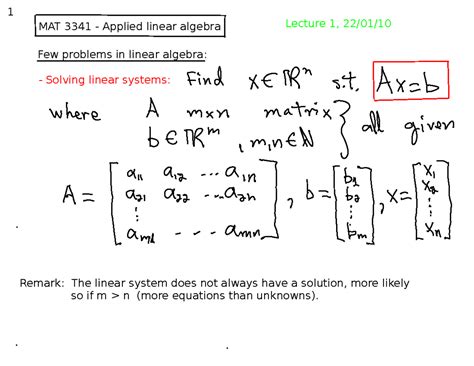 1
MAT 3341 - Applied linear algebra
Lecture 1, 22/01/10
Few problems in linear algebra:
- Solving linear systems: Find x∈ℝⁿ s.t. Ax=b
where A mxn matrix } all given
b∈ℝᵐ, m,n∈ℕ
A = [ a₁₁ a₁₂ ... a₁ₙ ; a₂₁ a₂₂ ... a₂ₙ ; ⋮ ; aₘ₁ - - - aₘₙ ], b = [ b₁ ; b₂ ; ⋮ ; bₘ ], x = [ x₁ ; x₂ ; ⋮ ; xₙ ]
Remark: The linear system does not always have a solution, more likely
so if m > n (more equations than unknowns).